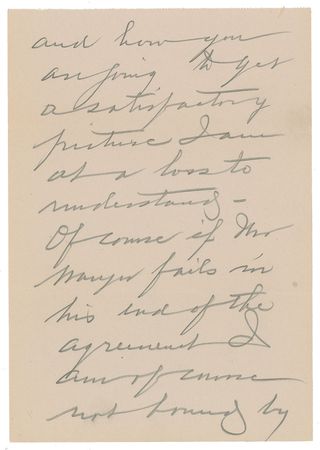 and how you
are going to get
a satisfactory
picture I am
at a loss to
understand –
Of course if Mr
Wanger fails in
his end of the
agreement I
am of course
not bound by